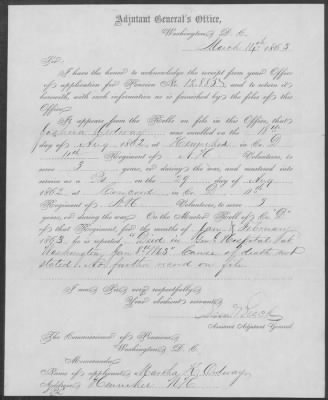 Adjutant General's Office,
Washington, D. C.
March 14th 1863
Sir:
I have the honor to acknowledge the receipt from your Office
of application for Pension No. and to return it
herewith, with such information as is furnished by the files of this
Office.
It appears from the Rolls on file in this Office, that
Joshua Ordway was enrolled on the 18th
day of Aug 1862 at in Co. D
Regiment of N H Volunteers, to
serve 3 years, or during the war, and mustered into
service as a on the day of Aug
1862, at Concord in Co. D
Regiment of N H Volunteers, to serve 3
years, or during the war. On the Muster Roll of Co. D
of that Regiment, for the months of Jan & February
1863, he is reported "Died in Hospital at
Washington Jan 1863" Cause of death not
stated. No further record on file
I am, Sir, very respectfully,
Your obedient servant,
Assistant Adjutant General.
The Commissioner of Pensions,
Washington, D. C.
Memoranda:
Name of applicant, Martha K. Ordway
Address, Henniker N H